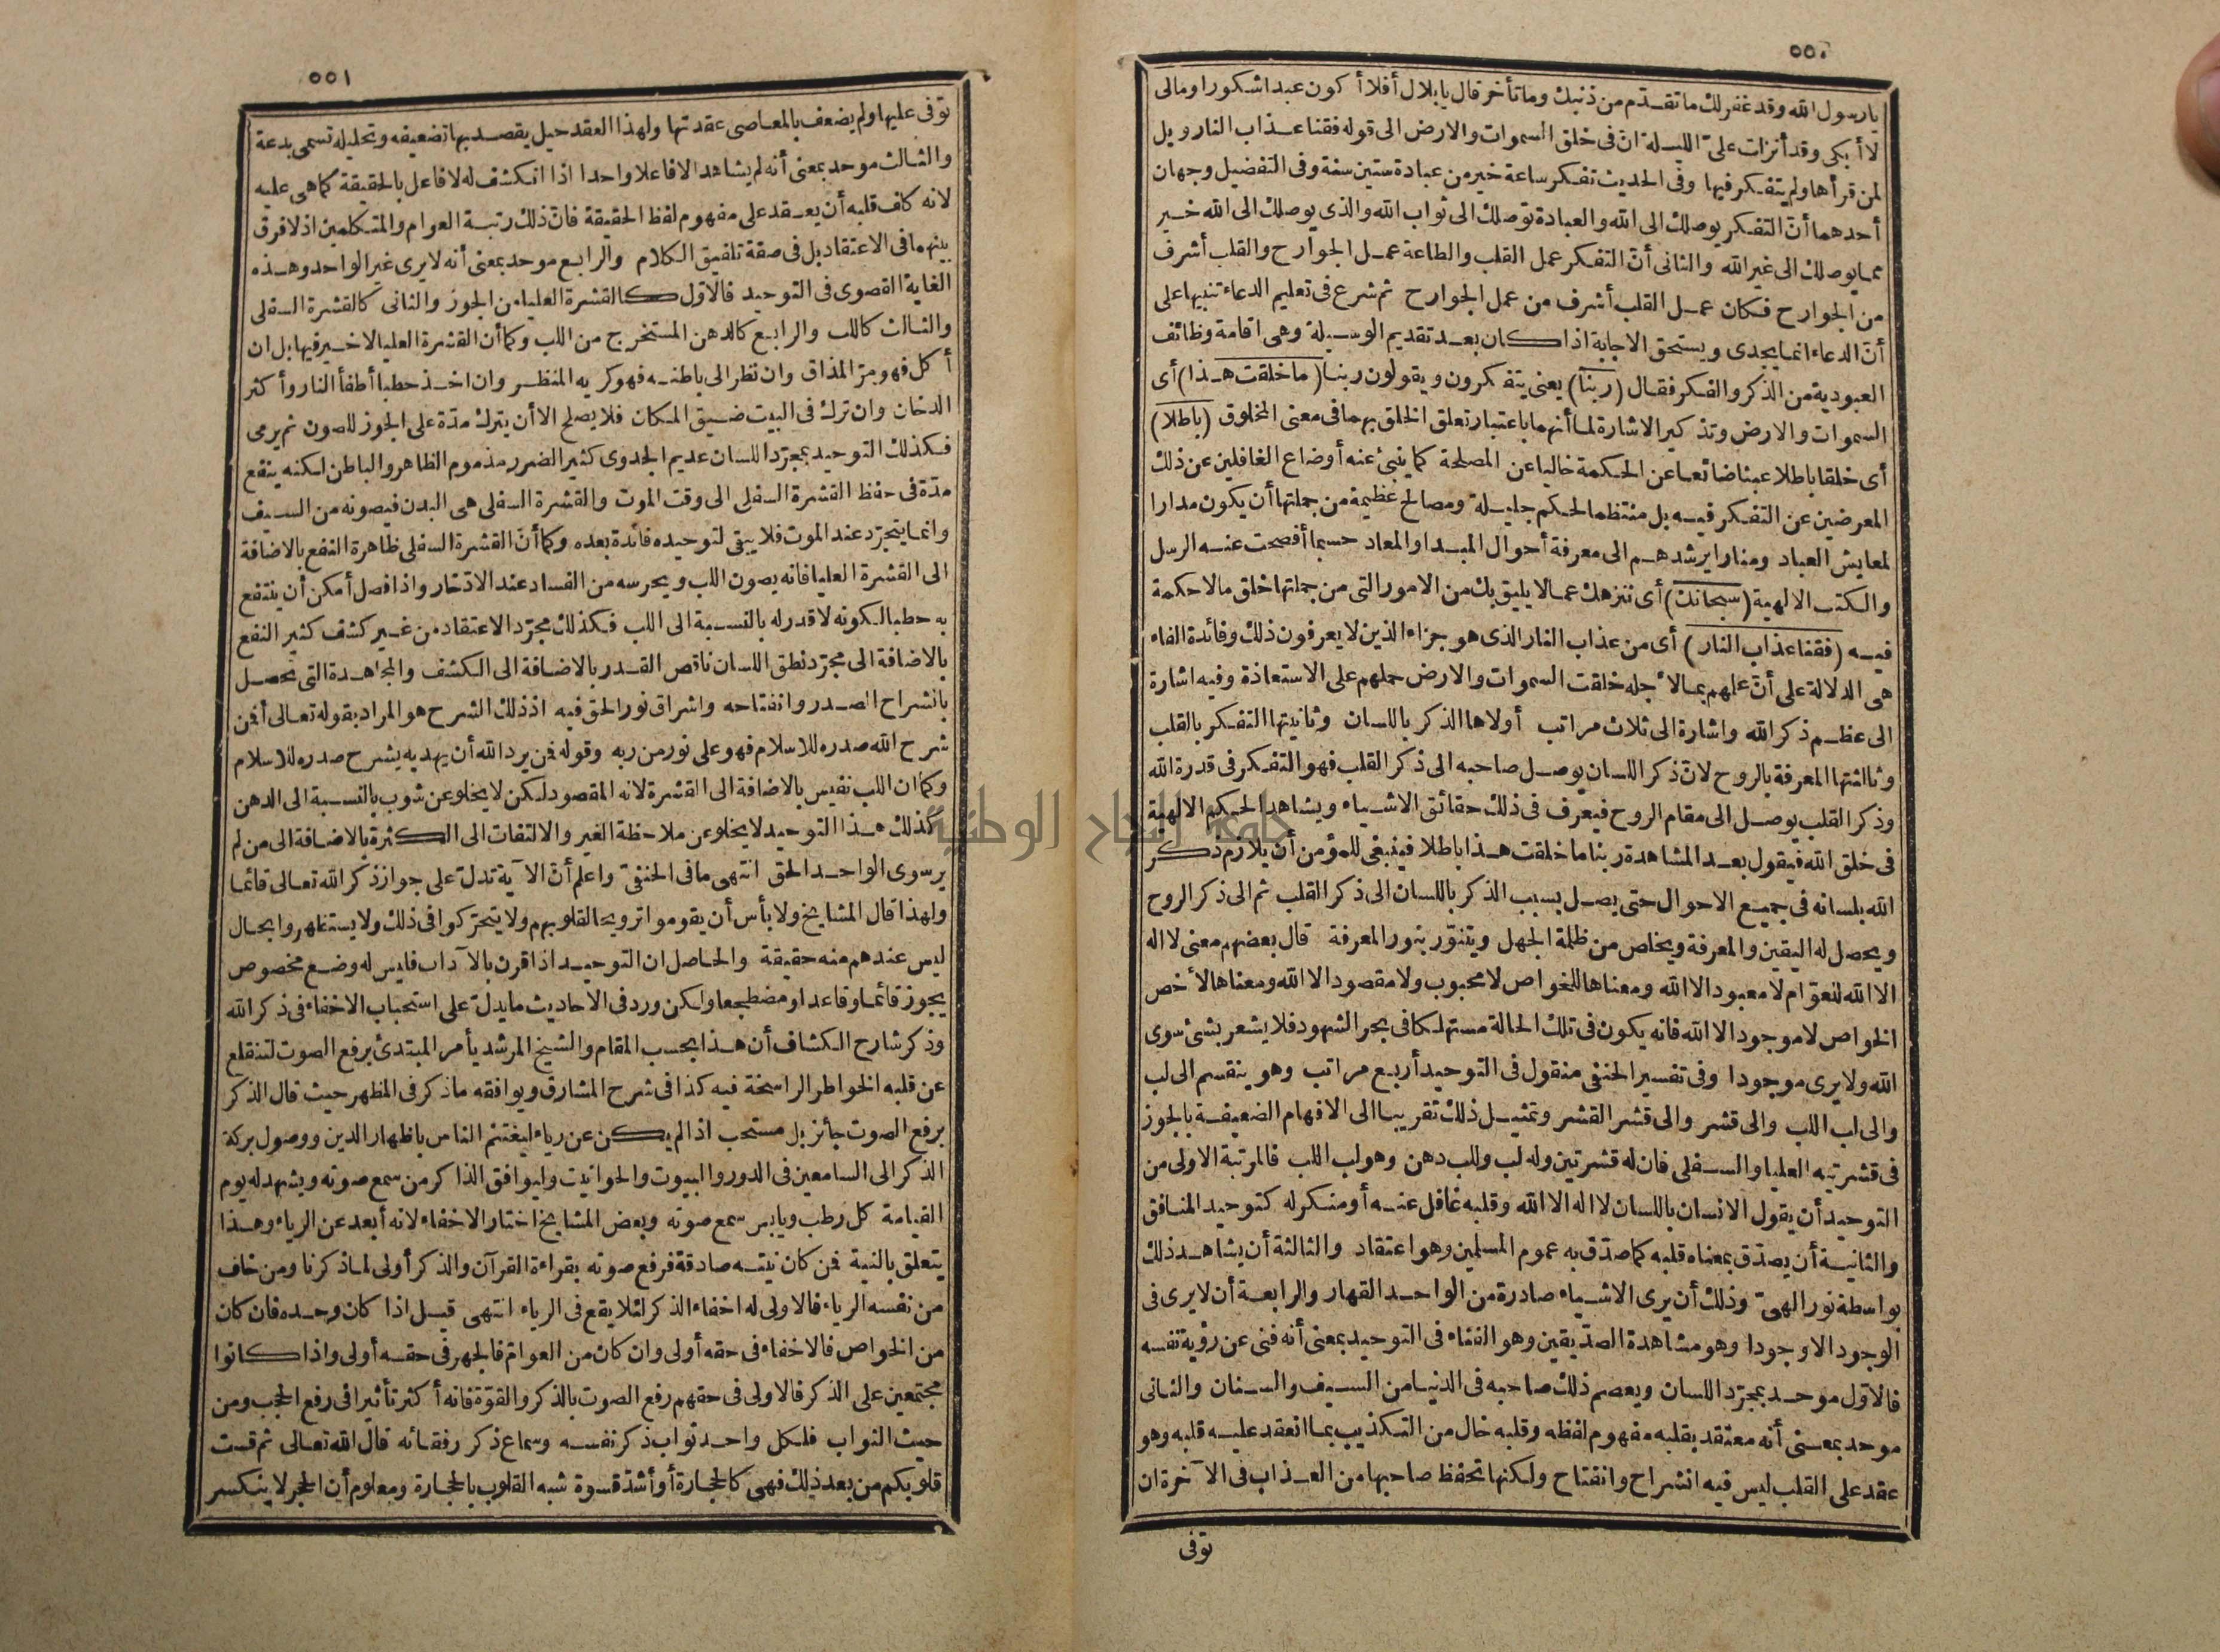 ٥٥٠
يا رسول الله وقد غفر لك ما تقدّم من ذنبك وما تأخر قال يا بلال أفلا أكون عبدا شكورا ومالى
لا أبكى وقد أنزات علىّ الليلة انّ فى خلق السموات والارض الى قوله فقنا عذاب النار ويل
لمن قرأها ولم يتفكر فيها وفى الحديث تفكر ساعة خير من عبادة ستين سنة وفى التفضيل وجهان
أحدهما أنّ التفكر يوصلك الى الله والعبادة توصلك الى ثواب الله والذى يوصلك الى الله خير
مما يوصلك الى غير الله والثانى أنّ التفكر عمل القلب والطاعة عمل الجوارح والقلب أشرف
من الجوارح فكان عمل القلب أشرف من عمل الجوارح ثم شرع فى تعليم الدعاء تنبيها على
أنّ الدعاء انما يجدى ويستحق الاجابة اذا كان بعد تقديم الوسيلة وهى اقامة وظائف
العبودية من الذكر والفكر فقال (ربنا) يعنى يتفكرون ويقولون ربنا (ما خلقت هذا) أى
السموات والارض وتذكير الاشارة لما أنهما باعتبار تعلق الخلق بهما فى معنى المخلوق (باطلا)
أى خلقا باطلا عبثا ضائعا عن الحكمة خاليا عن المصلحة كما ينبئ عنه أوضاع الغافلين عن ذلك
المعرضين عن التفكر فيه بل منتظما لحكم جليلة ومصالح عظيمة من جملتها أن يكون مدارا
لمعايش العباد ومنارا يرشدهم الى معرفة أحوال المبدا والمعاد حسبما أفصحت عنه الرسل
والكتب الالهية (سبحانك) أى ننزهك عما لا يليق بك من الامور التى من جملتها خلق ما لا حكمة
فيه (فقنا عذاب النار) أى من عذاب النار الذى هو جزاء الذين لا يعرفون ذلك وفائدة الفاء
هى الدلالة على أنّ علمهم بما لأجله خلقت السموات والارض حملهم على الاستعاذة وفيه اشارة
الى عظم ذكر الله واشارة الى ثلاث مراتب أولاها الذكر باللسان وثانيتها التفكر بالقلب
وثالثتها المعرفة بالروح لانّ ذكر اللسان يوصل صاحبه الى ذكر القلب فهو التفكر فى قدرة الله
وذكر القلب يوصل الى مقام الروح فيعرف فى ذلك حقائق الاشياء ويشاهد الحكم الالهية
فى خلق الله فيقول بعد المشاهدة ربنا ما خلقت هذا باطلا فينبغى للمؤمن أن يلازم ذكر
الله بلسانه فى جميع الاحوال حتى يصل بسبب الذكر باللسان الى ذكر القلب ثم الى ذكر الروح
ويحصل له اليقين والمعرفة ويخلص من ظلمة الجهل ويتنوّر بنور المعرفة قال بعضهم معنى لا اله
الا الله للعوّام لا معبود الا الله ومعناها للخواص لا محبوب ولا مقصود الا الله ومعناها لأخص
الخواص لا موجود الا الله فانه يكون فى تلك الحالة مستهلكا فى بحر الشهود فلا يشعر بشئ سوى
الله ولا يرى موجودا وفى تفسير الحنفى منقول فى التوحيد أربع مراتب وهو ينقسم الى لب
والى لب اللب والى قشر والى قشر القشر وتمثيل ذلك تقريبا الى الافهام الضعيفة بالجوز
فى قشرتيه العليا والسفلى فان له قشرتين وله لب وللب دهن وهو لب اللب فالمرتبة الاولى من
التوحيد أن يقول الانسان باللسان لا اله الا الله وقلبه غافل عنه أو منكر له كتوحيد المنافق
والثانية أن يصدّق بمعناه قلبه كما صدّق به عموم المسلمين وهو اعتقاد والثالثة أن يشاهد ذلك
بواسطة نور الهىّ وذلك أن يرى الاشياء صادرة من الواحد القهار والرابعة أن لا يرى فى
الوجود الا وجودا وهو مشاهدة الصدّيقين وهو الفناء فى التوحيد بمعنى أنه فنى عن رؤية نفسه
فالاوّل موحد بمجرّد اللسان ويعصم ذلك صاحبه فى الدنيا من السيف والسنان والثانى
موحد بمعنى أنه معتقد بقلبه مفهوم لفظه وقلبه خال من التكذيب بما انعقد عليه قلبه وهو
عقد على القلب ليس فيه انشراح وانفتاح ولكنها تحفظ صاحبها من العذاب فى الآخرة ان
توفى
٥٥١
توفى عليها ولم يضعف بالمعاصى عقدتها ولهذا العقد حيل يقصد بها تضعيفه وتحليله تسمى بدعة
والثالث موحد بمعنى أنه لم يشاهد الا فاعلا واحدا اذا انكشف له لا فاعل بالحقيقة كما هى عليه
لانه كاف قلبه أن يعقد على مفهوم لفظ الحقيقة فانّ ذلك رتبة العوام والمتكلمين اذ لا فرق
بينهما فى الاعتقاد بل فى صفة تلفيق الكلام والرابع موحد بمعنى أنه لا يرى غير الواحد وهذه
الغاية القصوى فى التوحيد فالاوّل كالقشرة العليا من الجوز والثانى كالقشرة السفلى
والثالث كاللب والرابع كالدهن المستخرج من اللب وكما أن القشرة العليا لا خير فيها بل ان
أكل فهو مرّ المذاق وان نظر الى باطنه فهو كريه المنظر وان اخذ حطبا أطفأ النار وأكثر
الدخان وان ترك فى البيت ضيق المكان فلا يصلح الا أن يترك مدّة على الجوز للصون ثم يرمى
فكذلك التوحيد بمجرّد اللسان عديم الجدوى كثير الضرر مذموم الظاهر والباطن لكنه ينفع
مدّة فى حفظ القشرة السفلى الى وقت الموت والقشرة السفلى هى البدن فيصونه من السيف
وانما يتجرّد عند الموت فلا يبقى لتوحيده فائدة بعده وكما أنّ القشرة السفلى ظاهرة النفع بالاضافة
الى القشرة العليا فانه يصون اللب ويحرسه من الفساد عند الادّخار واذا فصل أمكن أن ينتفع
به حطبا لكونه لا قدر له بالنسبة الى اللب فكذلك مجرّد الاعتقاد من غير كشف كثير النفع
بالاضافة الى مجرّد نطق اللسان ناقص القدر بالاضافة الى الكشف والمجاهدة التى تحصل
بانشراح الصدر وانفتاحه واشراق نور الحق فيه اذ ذلك الشرح هو المراد بقوله تعالى أفمن
شرح الله صدره للاسلام فهو على نور من ربه وقوله فمن يرد الله أن يهديه يشرح صدره للاسلام
وكما ان اللب نفيس بالاضافة الى القشرة لانه المقصود لكن لا يخلو عن شوب بالنسبة الى الدهن
كذلك هذا التوحيد لا يخلو عن ملاحظة الغير والالتفات الى الكثرة بالاضافة الى من لم
ير سوى الواحد الحق انتهى ما فى الحنفىّ واعلم أنّ الآية تدلّ على جواز ذكر الله تعالى قائما
ولهذا قال المشايخ ولا بأس أن يقوموا ترويحا لقلوبهم ولا يتحرّكوا فى ذلك ولا يستظهروا بحال
ليس عندهم منه حقيقة والحاصل ان التوحيد اذا قرن بالآداب فليس له وضع مخصوص
يجوز قائما وقاعدا ومضطجعا ولكن ورد فى الاحاديث ما يدلّ على استحباب الاخفاء فى ذكر الله
وذكر شارح الكشاف أن هذا بحسب المقام والشيخ المرشد يأمر المبتدئ برفع الصوت لتنقلع
عن قلبه الخواطر الراسخة فيه كذا فى شرح المشارق ويوافقه ما ذكر فى المظهر حيث قال الذكر
برفع الصوت جائز بل مستحب اذا لم يكن عن رياء ليغتنم الناس باظهار الدين ووصول بركة
الذكر الى السامعين فى الدور والبيوت والحوانيت وليوافق الذاكر من سمع صوته ويشهد له يوم
القيامة كل رطب ويابس سمع صوته وبعض المشايخ اختار الاخفاء لانه أبعد عن الرياء وهذا
يتعلق بالنية فمن كان نيته صادقة فرفع صوته بقراءة القرآن والذكر أولى لما ذكرنا ومن خاف
من نفسه الرياء فالاولى له اخفاء الذكر لئلا يقع فى الرياء انتهى قيل اذا كان وحده فان كان
من الخواص فالاخفاء فى حقه أولى وان كان من العوامّ فالجهر فى حقه أولى واذا كانوا
مجتمعين على الذكر فالاولى فى حقهم رفع الصوت بالذكر والقوّة فانه أكثر تأثيرا فى رفع الحجب ومن
حيث الثواب فلكل واحد ثواب ذكر نفسه وسماع ذكر رفقائه قال الله تعالى ثم قست
قلوبكم من بعد ذلك فهى كالحجارة أو أشدّ قسوة شبه القلوب بالحجارة ومعلوم أن الحجر لا ينكسر
جامعة النجاح الوطنية